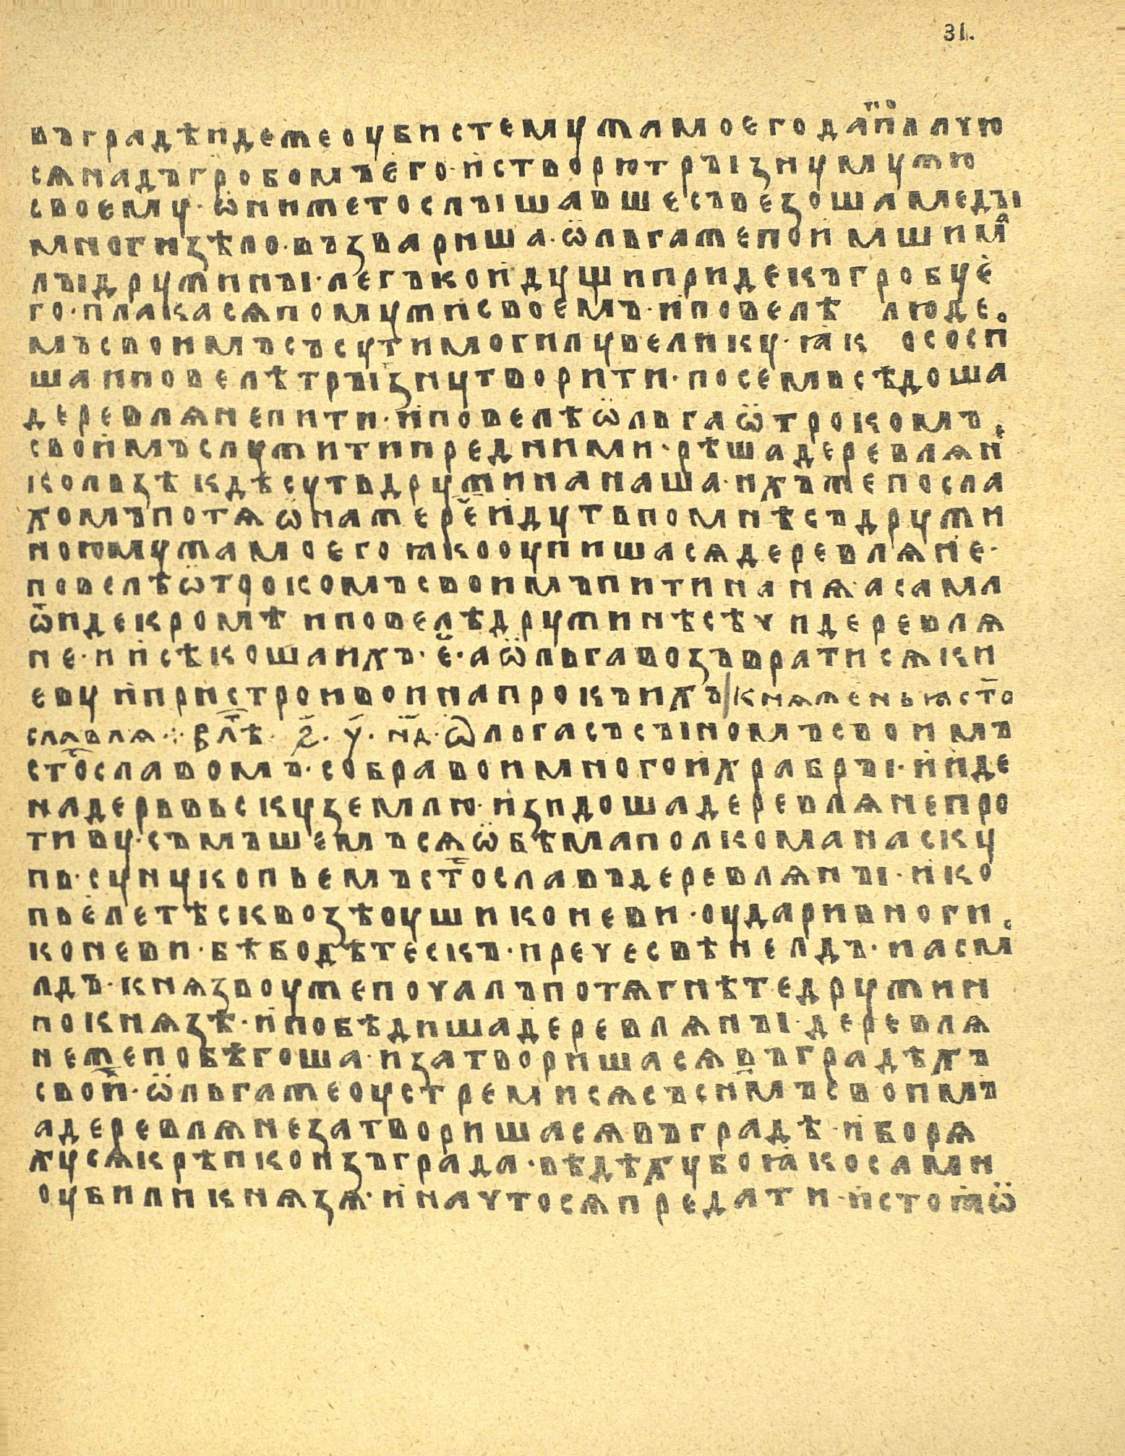 31.
въградѣидежеоубистемужамоегодапоплачю
сѧнадъгробомъего·истворютръізнумужю
своему·ѡнижетослъішавшесъвезошамедъі
многизѣло·възвариша·ѡльгажепоимшима
лъідружинъі·легъкоидущипридекъгробуе
го·плакасѧпомужисвоемъ·иповелѣ люде
мъсвоимъсъсутимогилувелику·ꙗк ососп
шаиповелѣтръізнутворити·посемьсѣдоша
деревлѧнепити·иповелѣѡльгаѡтрокомъ
своимъслужитипредними·рѣшадеревлѧн
кользѣкдѣсутьдружинанаша·ихъжепосла
хомъпотѧѡнажерⷱ҇еидутьпомнѣсъдружи
ноюмужамоегоꙗкооупишасѧдеревлѧне·
повелѣѡтрокомъсвоимъпитинанѧасама
ѿидекромѣиповелѣдружинѣсѣчидеревлѧ
не·иисѣкошаихъ·҂е҃·аѡльгавозъвратисѧки
евуипристроивоинапрокъихъ|кнѧженьꙗст҃о
славлѧ·:·влⷮѣ·҂ѕ҃·у҃·н҃д·Ѡлогасъсъіномъсвоимъ
ст҃ославомъ·собравоимногоихрабръі·ииде
надерьвьскуземлю·изидошадеревлѧнепро
тиву·съмъшемъсѧѡбѣмаполкоманаску
пь·сунукопьемъст҃ославъдеревлѧнъі·ико
пьелетѣсквозѣоушиконеви·оударивноги
коневи·бѣбодѣтескъ·иречесвѣнелдъ·иасм
лдъ·кнѧзьоужепочалъпотѧгнѣтедружин
покнѧзѣ·ипобѣдишадеревлѧнъі·деревлѧ
нежепобѣгоша·изатворишасѧвъградѣхъ
своиⷯ·ѡльгажеоустремисѧсъсн҃мъсвоимъ
адеревлѧнезатворишасѧвъградѣ·иборѧ
хусѧкрѣпкоизъграда·вѣдѣхубоꙗкосами
оубиликнѧзѧ·иначтосѧпредати·истоꙗѡ